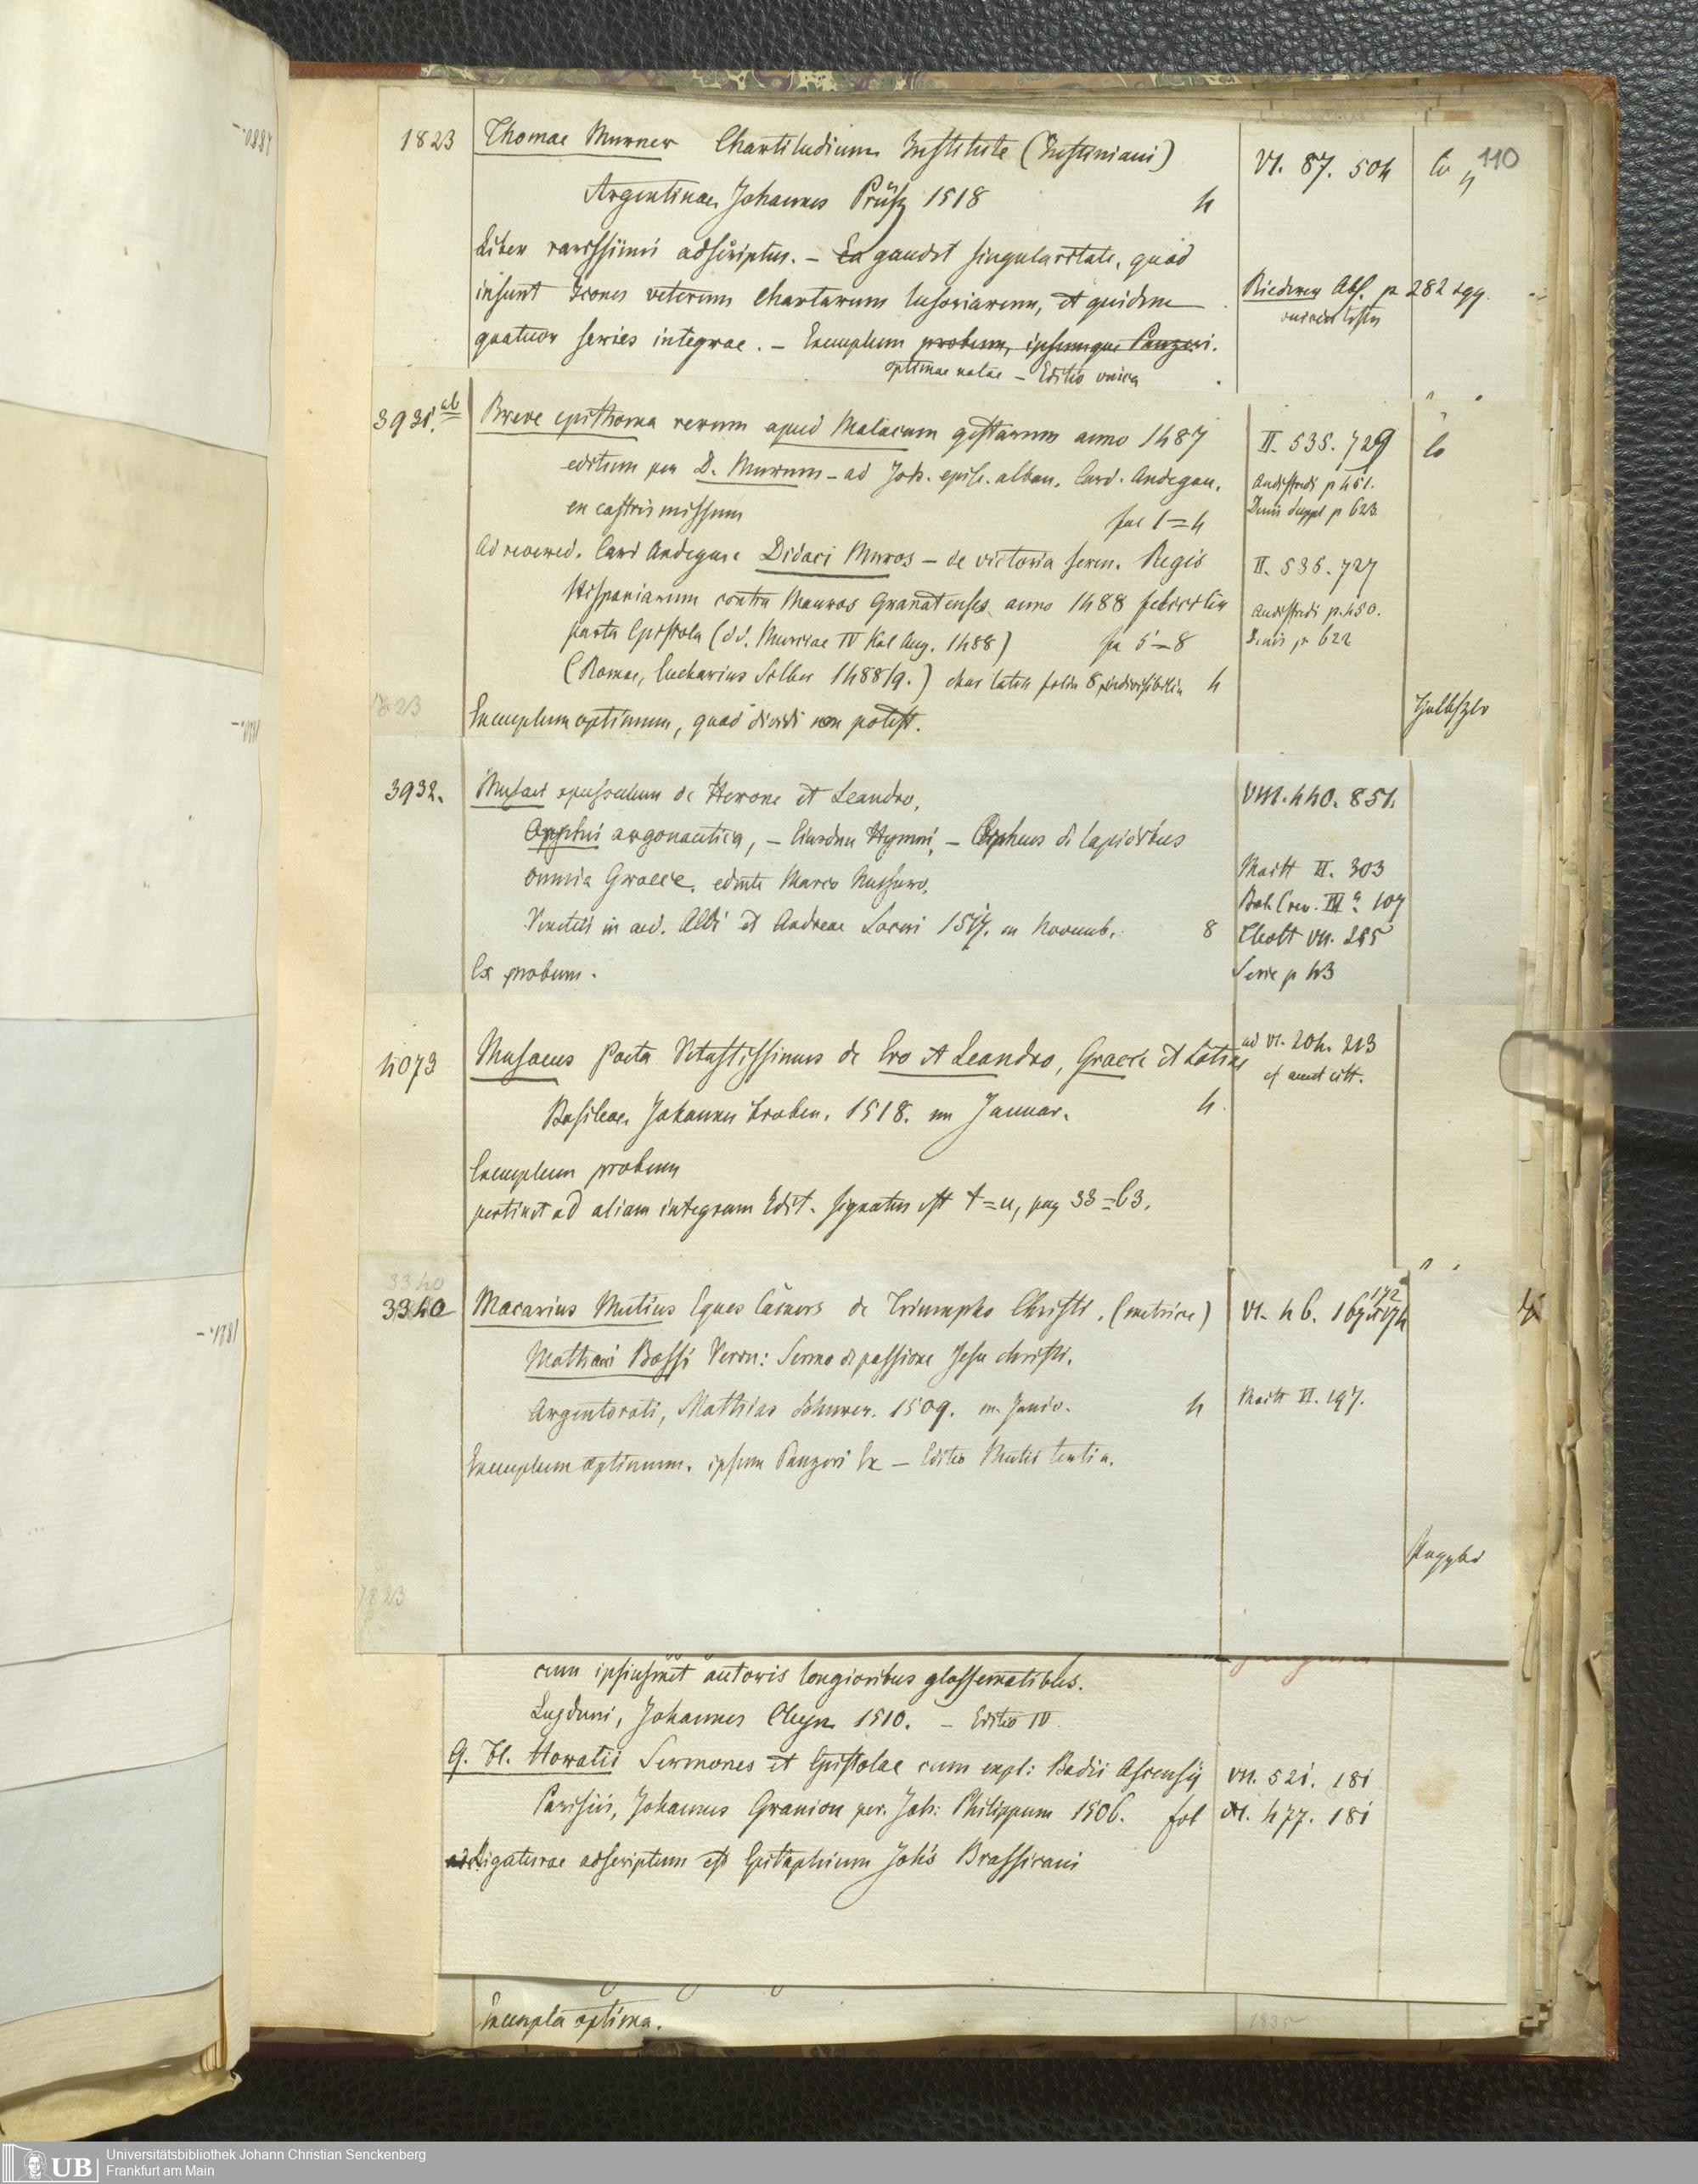 110
1823 Thomae Murner Chartiludium Institute (Justiniani) VI. 87. 504
Argentinae, Johannes Prüß 1518 4
Liber rarissimis adscriptus. – gaudet singularitate, quod
insunt Icones veterum chartarum lusoriarum, et quidem Riederer Abh. p 282 sqq.
quatuor series integrae. – Exemplum probum, ipsumque Panzeri.
optimae notae – Editio unica
3931. ab Breve epithoma rerum apud Malacam gestarum anno 1487 II. 535. 729
editum per D. Murum – ad Joh. episc. alban. Card. Andegav. Audiffredi p 451.
ex castris missum fol 1=4 Denis Suppl p 623
Ad reverend. Card Andegav. Didaci Muros – de victoria seren. Regis II. 535. 727
Hispaniarum contra Mauros Granatenses anno 1488 feliciter Audiffredi p. 450.
parta Epistola (dd. Murciae IV Kal Aug. 1488) fol 5=8 Denis p 622
(Romae, Eucharius Silber 1488/9.) folia 8 indivisibilia 4
Exemplum optimum, quod dividi non potest.
3932. Musaei opusculum de Herone et Leandro, VIII. 440. 851.
Orphei argonautica, – Eiusdem Hymni, – Orpheus de lapidibus
omnia Graece, edente Marco Musuro, Maitt II. 303
Venetiis in aed. Aldi et Andreae Soceri 1517. m Novemb. 8 Thott VII. 255
Ex probum. Serie p 43
4073 Musaeus Poeta Vetustissimus de Ero et Leandro, Graece et Latine ad VI. 204. 213
Basileae, Johannes Froben. 1518. m Januar. 4.
Exemplum probum
pertinet ad aliam integram Edit. signatus est t=u, pag 33=63.
3340
3340 Macarius Mutius Eques Camers de Triumpho Christi. (metrice) VI. 46. 172
Mathaei Bossi Veron: Sermo de passione Jesu Christi.
Argentorati, Mathias Schurer. 1509. m. Junio. 4 Maitt II. 197.
Exemplum optimum. ipsum Panzeri Ex – Editio Mutii tertia.
cum ipsiusmet autoris longioribus glossematibus.
Lugduni, Johannes Cleyn 1510. – Editio IV
Q. Fl. Horatii Sermones et Epistolae cum expl: Badii Ascensii VII. 521. 181
Parisiis, Johannes Granion per. Joh: Philippum 1506. fol 477. 181
Ligaturae adscriptum est Epitaphium Johis Brassicani
Exempla optima.
1835
Universitätsbibliothek Johann Christian Senckenberg
Frankfurt am Main
UB